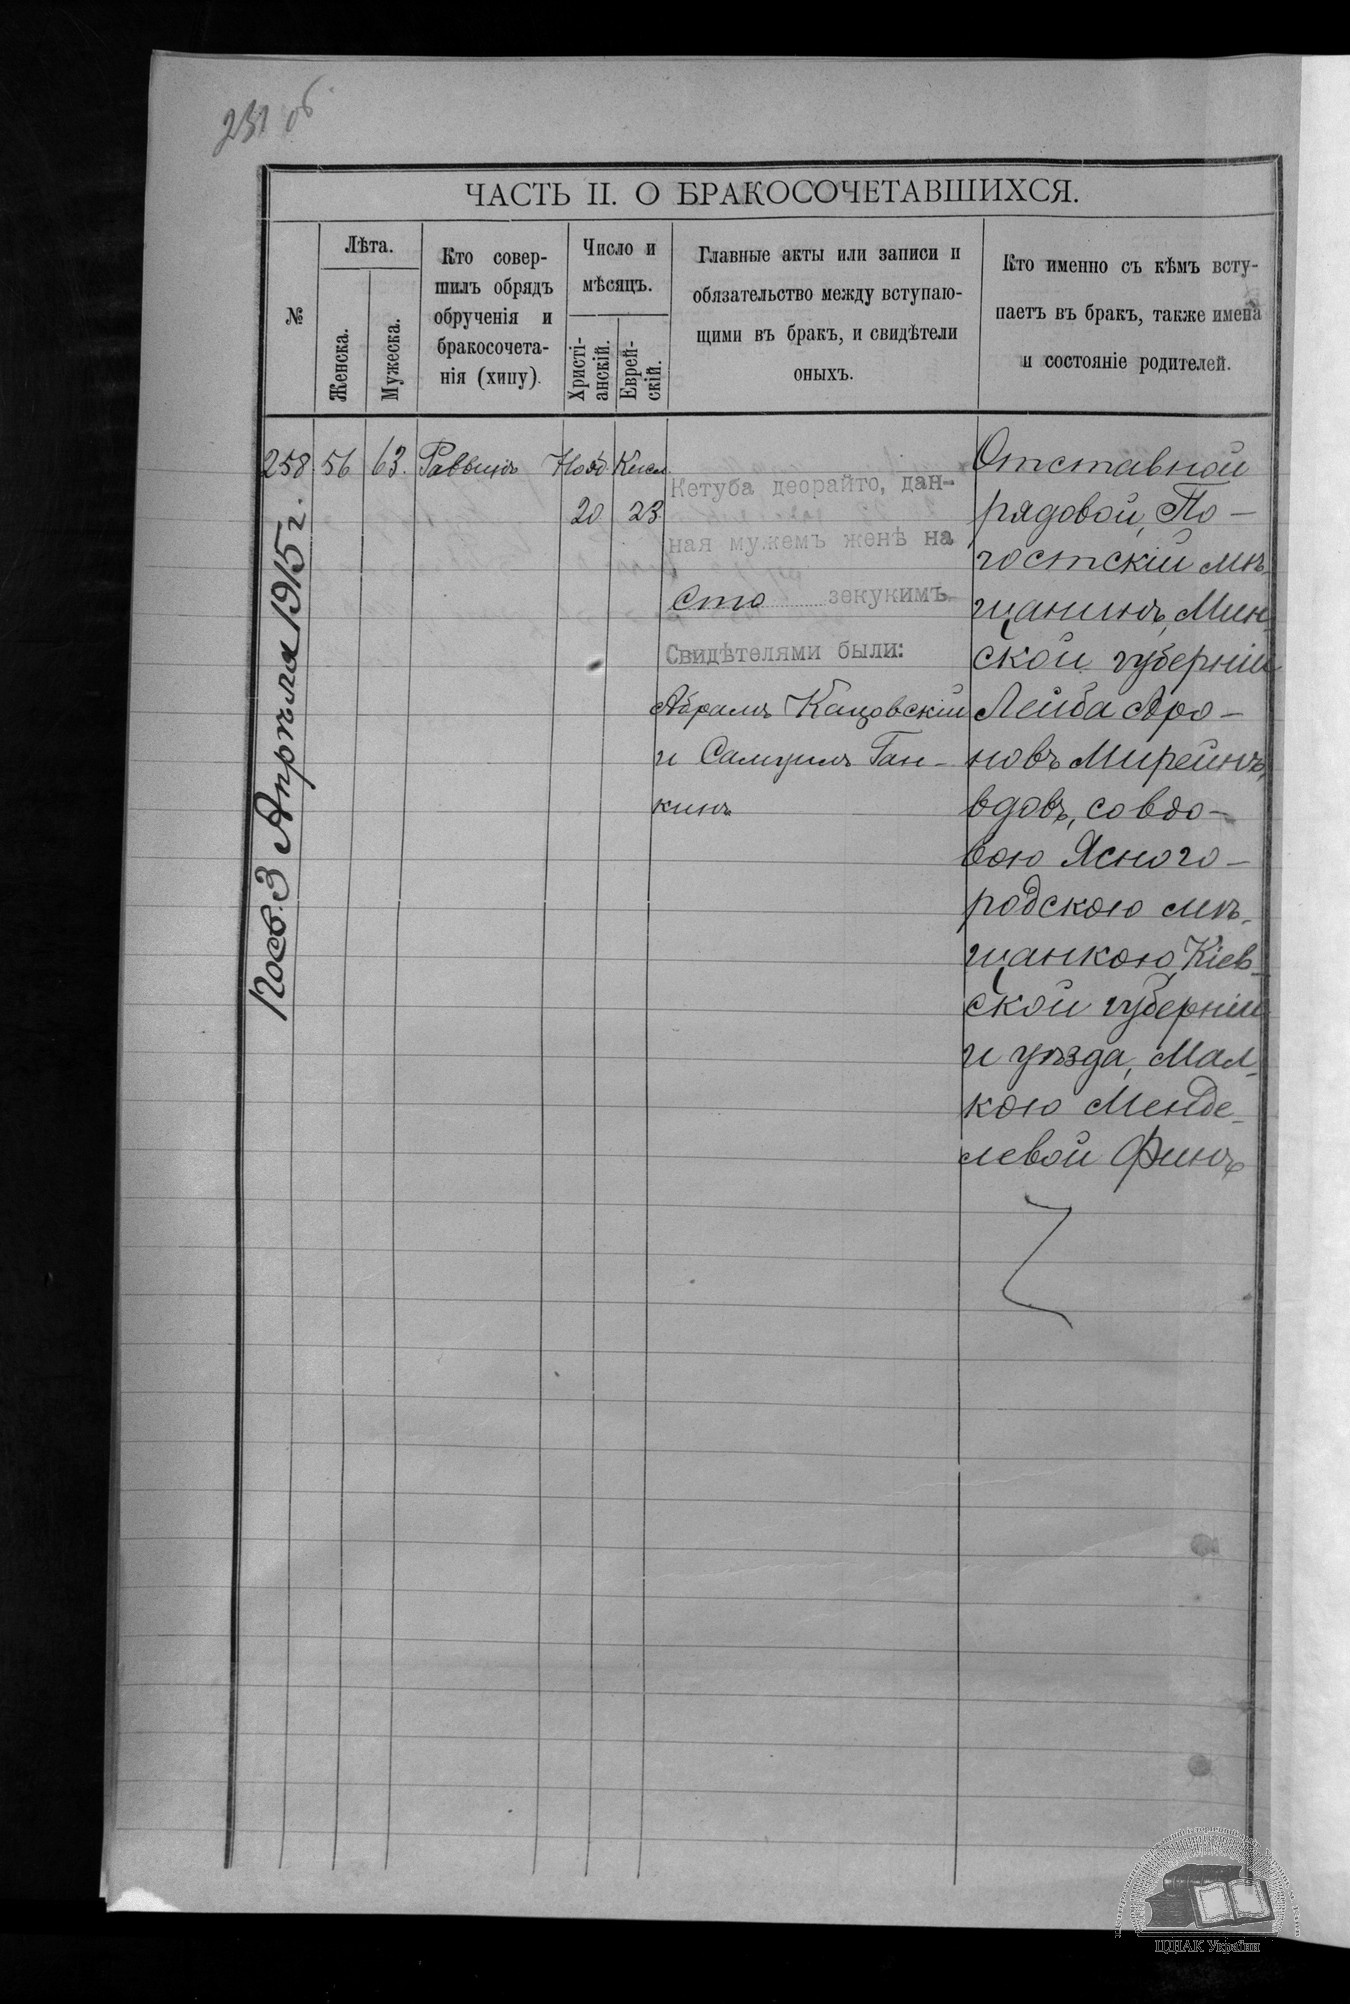 231 об.
ЧАСТЬ II. О БРАКОСОЧЕТАВШИХСЯ.
№
Лѣта.
Женска.
Мужеска.
Кто совер-
шилъ обрядъ
обрученія и
бракосочета-
нія (хипу).
Число и
мѣсяцъ.
Христі-
анскій.
Еврей-
скій.
Главные акты или записи и
обязательство между вступаю-
щими въ бракъ, и свидѣтели
оныхъ.
Кто именно съ кѣмъ всту-
паетъ въ бракъ, также имена
и состояніе родителей.
258. 56 63. Раввинъ Нояб. Кисл.
20 23.
Кетуба деорайто, дан-
ная мужемъ женѣ на
сто зекукимъ.
Свидѣтелями были:
Абрамъ Кацовскій
и Самуилъ Ган-
кинъ
Отставной
рядовой, По-
гостскій мѣ-
щанинъ, Мин-
ской губерніи
Лейба Аро-
новъ Мирейнъ,
вдовъ, со вдо-
вою Ясного-
родскою мѣ-
щанкою, Кіев-
ской губерніи
и уѣзда, Мал-
кою Менде-
левой Финъ
Посв. 3 Апрѣля 1915 г.
ЦДІАК України